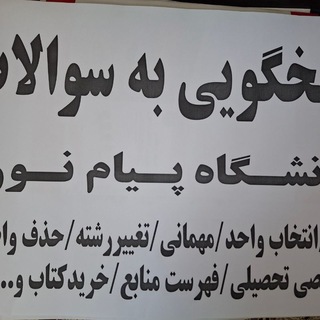 خگویی به سوالا
نشگاه پیام نور
انتخاب واحد/مهمانی/تغییررشته/حذف وا
صی تحصیلی/فهرست منابع/خریدکتاب و..